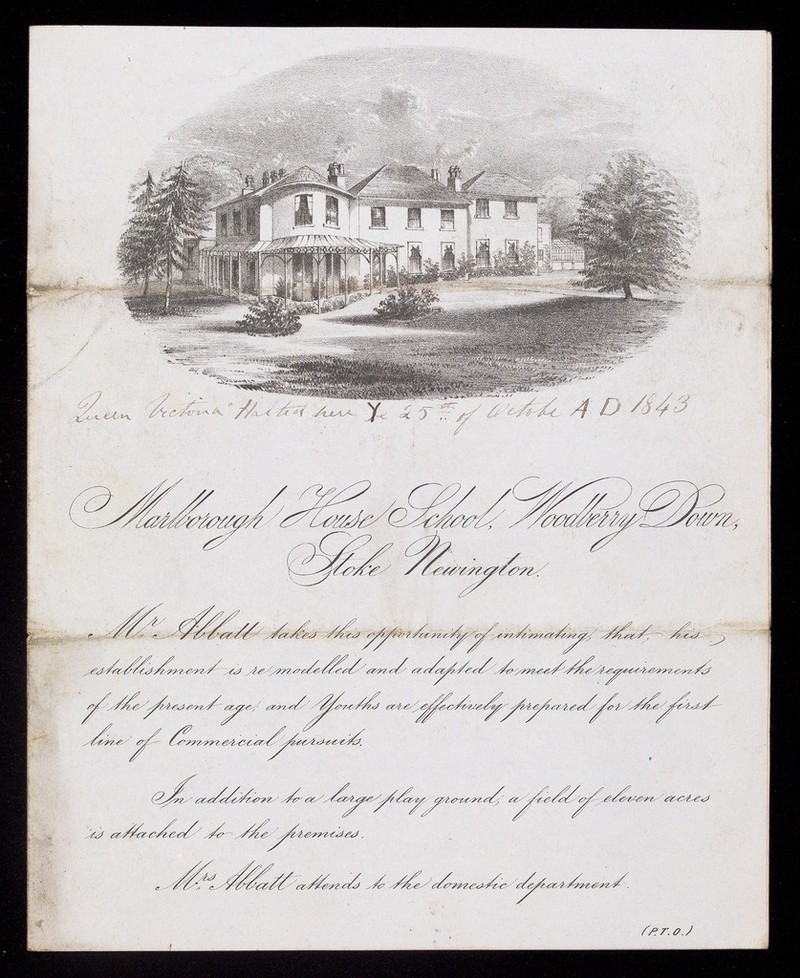 Queen Victoria Halted here Ye 25th of Octobe A D 1843
Marlborough House School, Woodberry Down,
Stoke Newington.
Mr. Abbatt takes this opportunity of intimating, that, his
establishment is re modelled and adapted to meet the requirements
of the present age; and Youths are effectively prepared for the first
line of Commercial pursuits.
In addition to a large play ground, a field of eleven acres
is attached to the premises.
Mrs. Abbatt attends to the domestic department.
(P.T.O.)